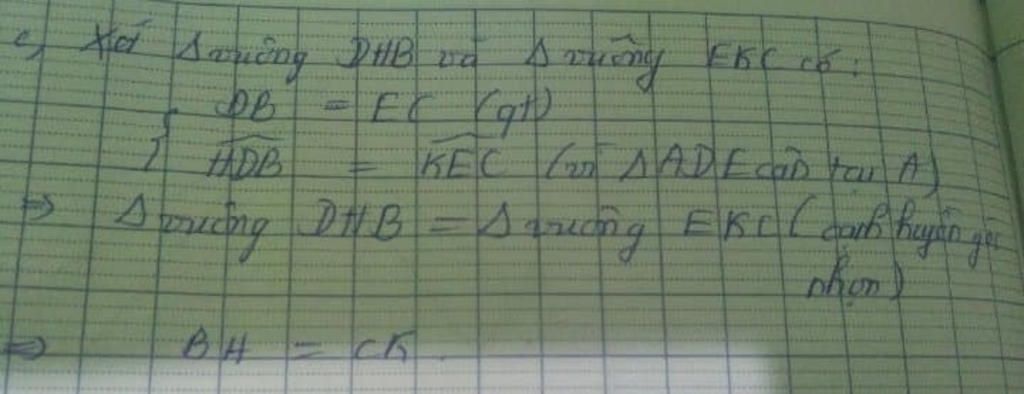 c, Xét Δ vuông DHB và Δ vuông EKC có:
{ DB = EC (gt)
HDB = KEC (vì Δ ADE cân tại A)
=> Δ vuông DHB = Δ vuông EKC (cạnh huyền góc
nhọn)
=> BH = CK